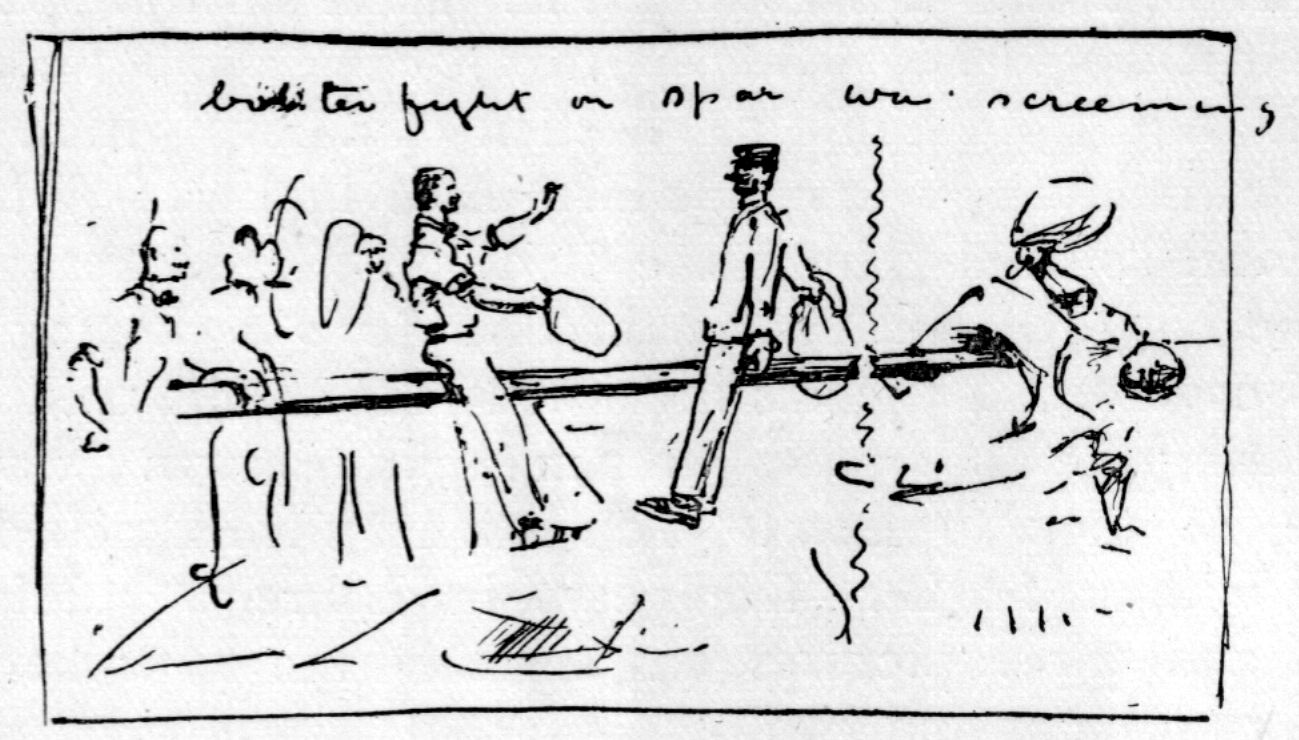 bolster fight on spar was screeming